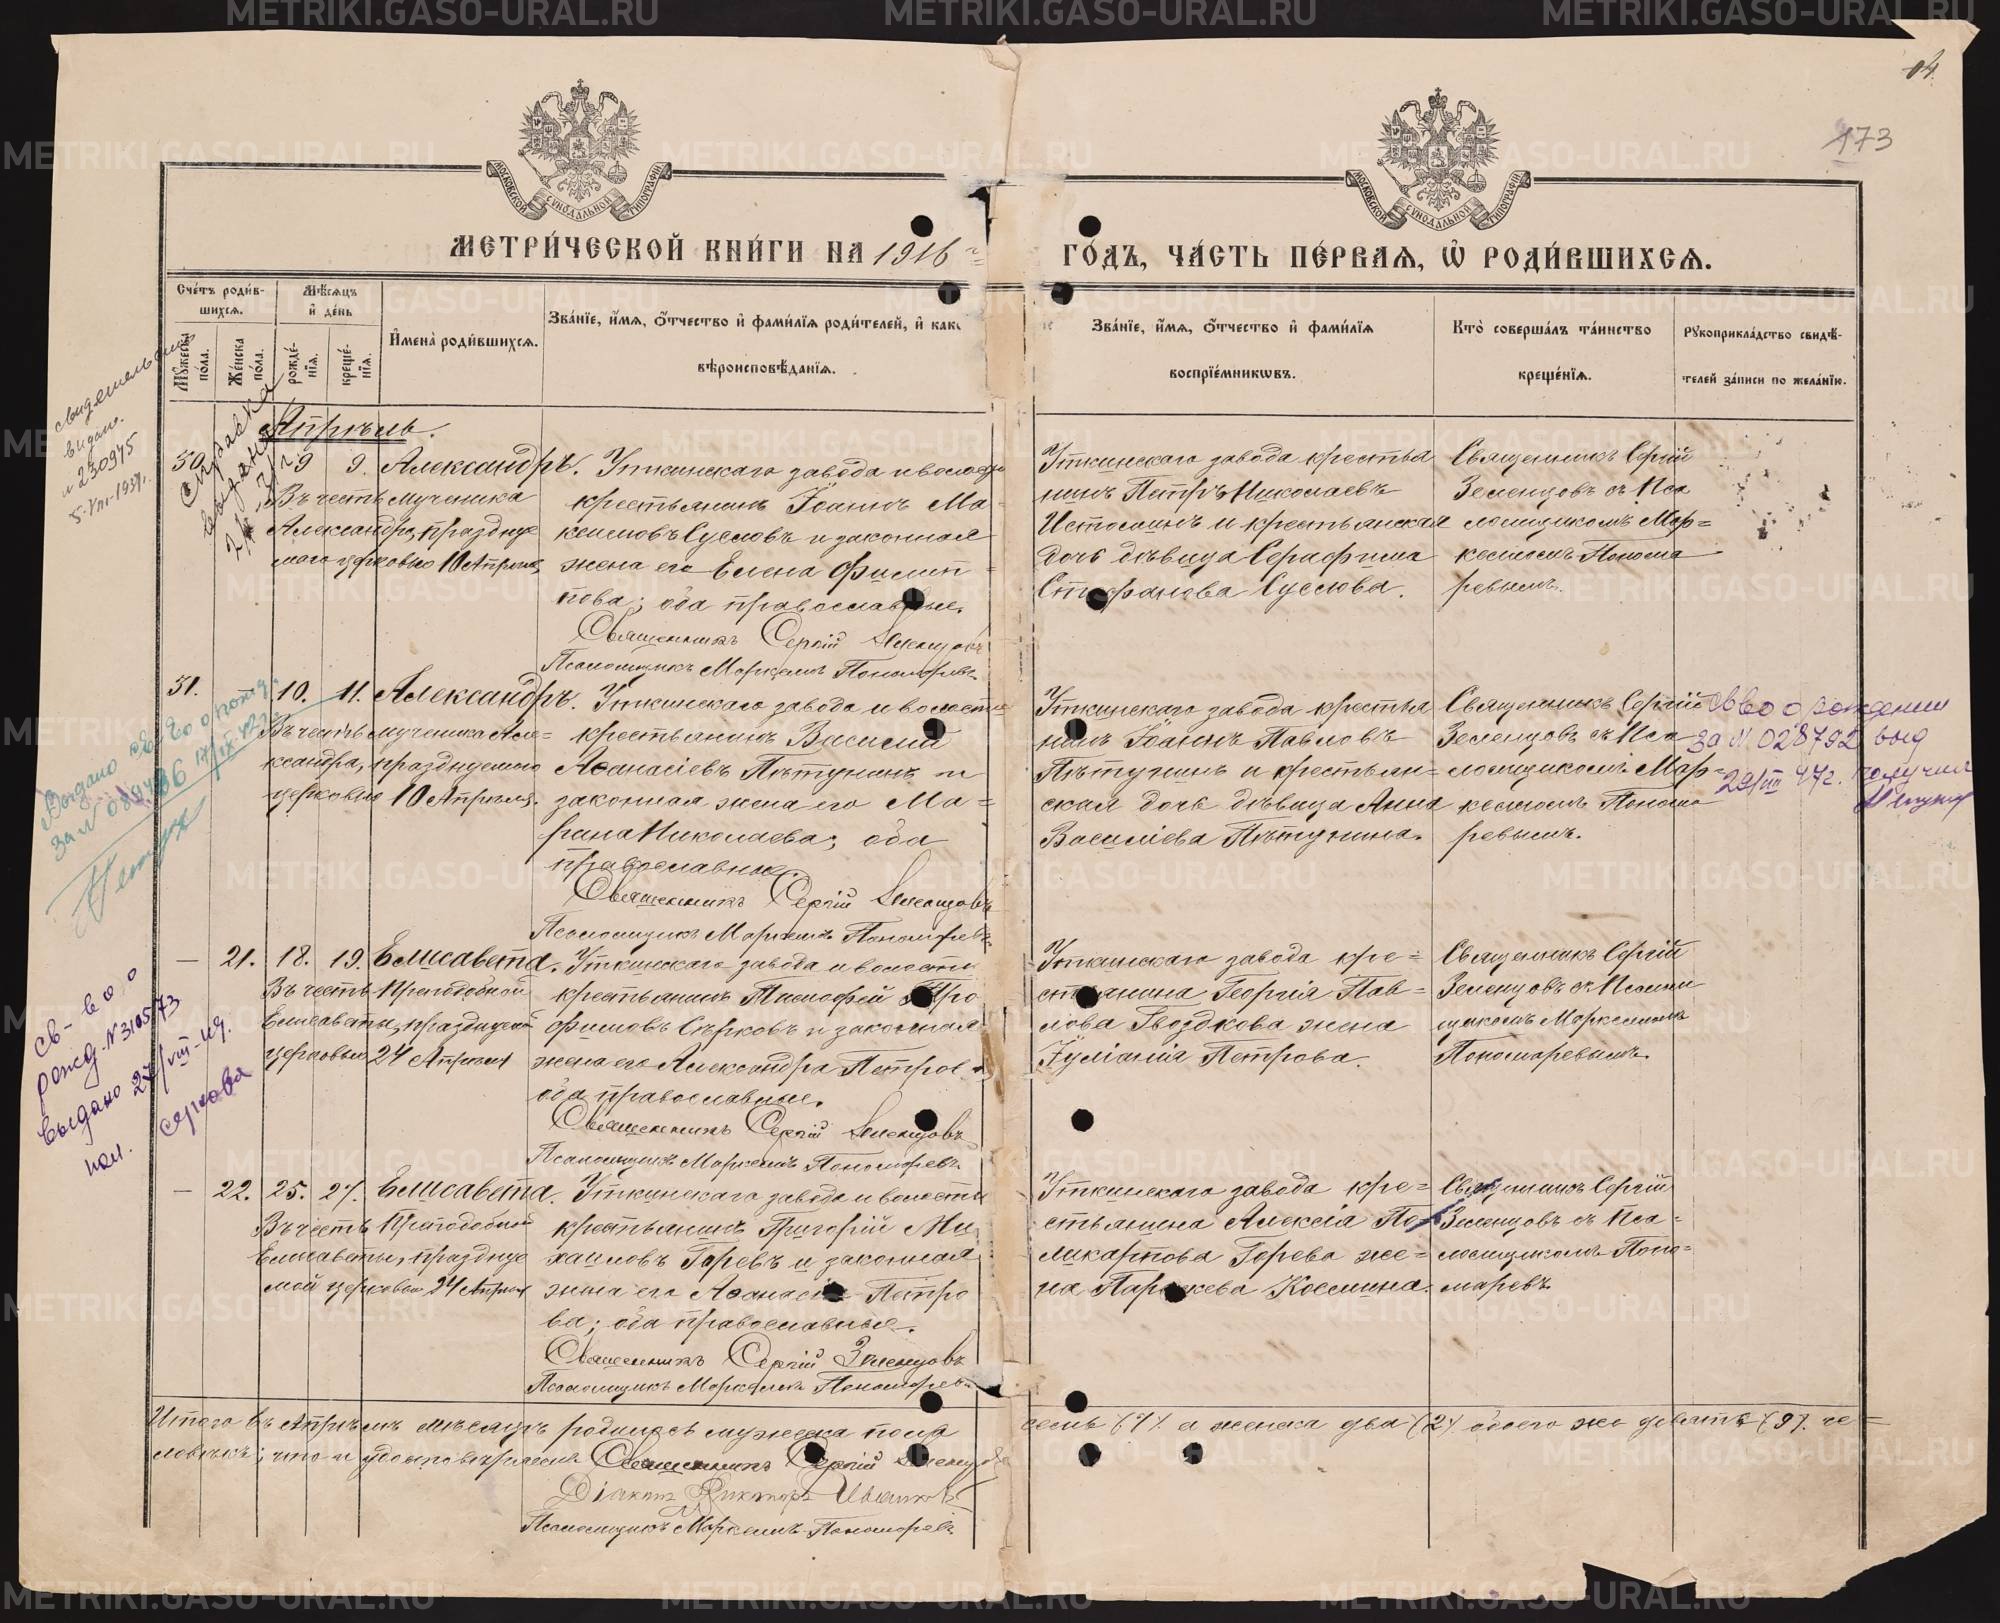 04.
173
МЕТРИ́ЧЕСКОЙ КНИ́ГИ НА 1916 ГО́ДЪ, ЧА́СТЬ ПЕ́РВАЯ, Ѡ РОДИ́ВШИХСЯ.
МОСКОВСКОЙ СѴНОДАЛЬНОЙ ТИПОГРАФІИ
МОСКОВСКОЙ СѴНОДАЛЬНОЙ ТИПОГРАФІИ
Сче́тъ роди́в-
шихся.
Мѣ́сяцъ
и҆ де́нь
Мꙋ́жеска по́ла.
Же́нска по́ла.
рожде́-
нія.
креще́-
нія.
И҆мена̀ роди́вшихся.
Зва́ніе, и҆́мя, ѻ҆́тчество и҆ фами́лія роди́телей, и҆ как
вѣроисповѣ́данія.
Зва́ніе, и҆́мя, ѻ҆́тчество и҆ фами́лія
воспрїе́мниковъ.
Кто̀ соверша́лъ та́инство
креще́нія.
Рꙋкоприкла́дство свидѣ́-
телей за́писи по жела́нію.
Апрѣль.
30. 9 9. Александръ.
Въ честь мученика
Александра, праздnуе
маго церковью 10 Апрѣля,
Уткинскаго завода и волости
крестьянинъ Іоаннъ Ма-
ксимовъ Суслов и законная
жена его Елена Филип-
пова; оба православные.
Священникъ Сергій Зеленцовъ
Псаломщикъ Маркеллъ Пономаревъ.
Уткинскаго завода крестья
нинъ Петръ Николаевъ
Истоминъ и крестьянская
дочь дѣвица Серафима
Стефанова Суслова.
Священникъ Сергій
Зеленцовъ съ Пса
ломщикомъ Мар-
келломъ Понома
ревымъ.
31. 10. 11. Александръ.
Въ честь мученика Але-
ксандра, празднуемаго
церковью 10 Апрѣля.
Уткинскаго завода и волости
крестьянинъ Василій
Аѳанасіевъ Пѣтунинъ и
законная жена его Ма-
рина Николаева; оба
православные.
Священникъ Сергій Зеленцовъ
Псаломщикъ Маркеллъ Пономаревъ.
Уткинскаго завода крестья
нинъ Іоаннъ Павловъ
Пѣтунинъ и крестьян-
ская дочь дѣвица Анна
Василіева Пѣтунина.
Священникъ Сергій
Зеленцовъ съ Пса
ломщикомъ Мар-
келломъ Понома
ревымъ.
св во о рождении
за № 028792 выд
29/VIII 47 г. получил
— 21. 18. 19. Елисавета.
Въ честь Преподобной
Елисаветы, празднуемой
церковью 24 Апрѣля
Уткинскаго завода и волости
крестьянинъ Тимофей Тро
фимовъ Сѣрковъ и законная
жена его Александра Петров
оба православные.
Священникъ Сергій Зеленцовъ
Псаломщикъ Маркеллъ Пономаревъ.
Уткинскаго завода кре-
стьянина Георгія Пав-
лова Гвоздкова жена
Іуліанія Петрова.
Священникъ Сергій
Зеленцовъ съ Псалом
щикомъ Маркелломъ
Пономаревымъ.
— 22. 25. 27. Елисавета.
Въ честь Преподобной
Елисаветы, праздnуе
мой церковью 24 Апрѣля
Уткинскаго завода и волости
крестьянинъ Григорій Ми
хаиловъ Горевъ и законная
жена его Аѳанасія Петро
ва; оба православные.
Священникъ Сергій Зеленцовъ
Псаломщикъ Маркеллъ Пономаревъ.
Уткинскаго завода кре-
стьянина Алексія По-
ликарпова Горева же-
на Параскева Космина.
Священникъ Сергій
Зеленцовъ съ Пса-
ломщикомъ Поно-
маревъ.
Итого въ Апрѣлѣ мѣсяцѣ родилось мужеска пола семь (7) а женска два (2) обоего же девять (9) че-
ловѣкъ; что и удостовѣряемъ Священникъ Сергій Зеленцовъ
Діаконъ Викторъ
Псаломщикъ Маркеллъ Пономаревъ
свидетельство
выдано.
№ 230945
5-VIII-1939г.
Справка
выдана
Выдано св-во о рожд.
за № 089486 17/IX
св-во о
рожд. № 3105773
выдано 27/VIII-
пол. Серкова
METRIKI.GASO-URAL.RU